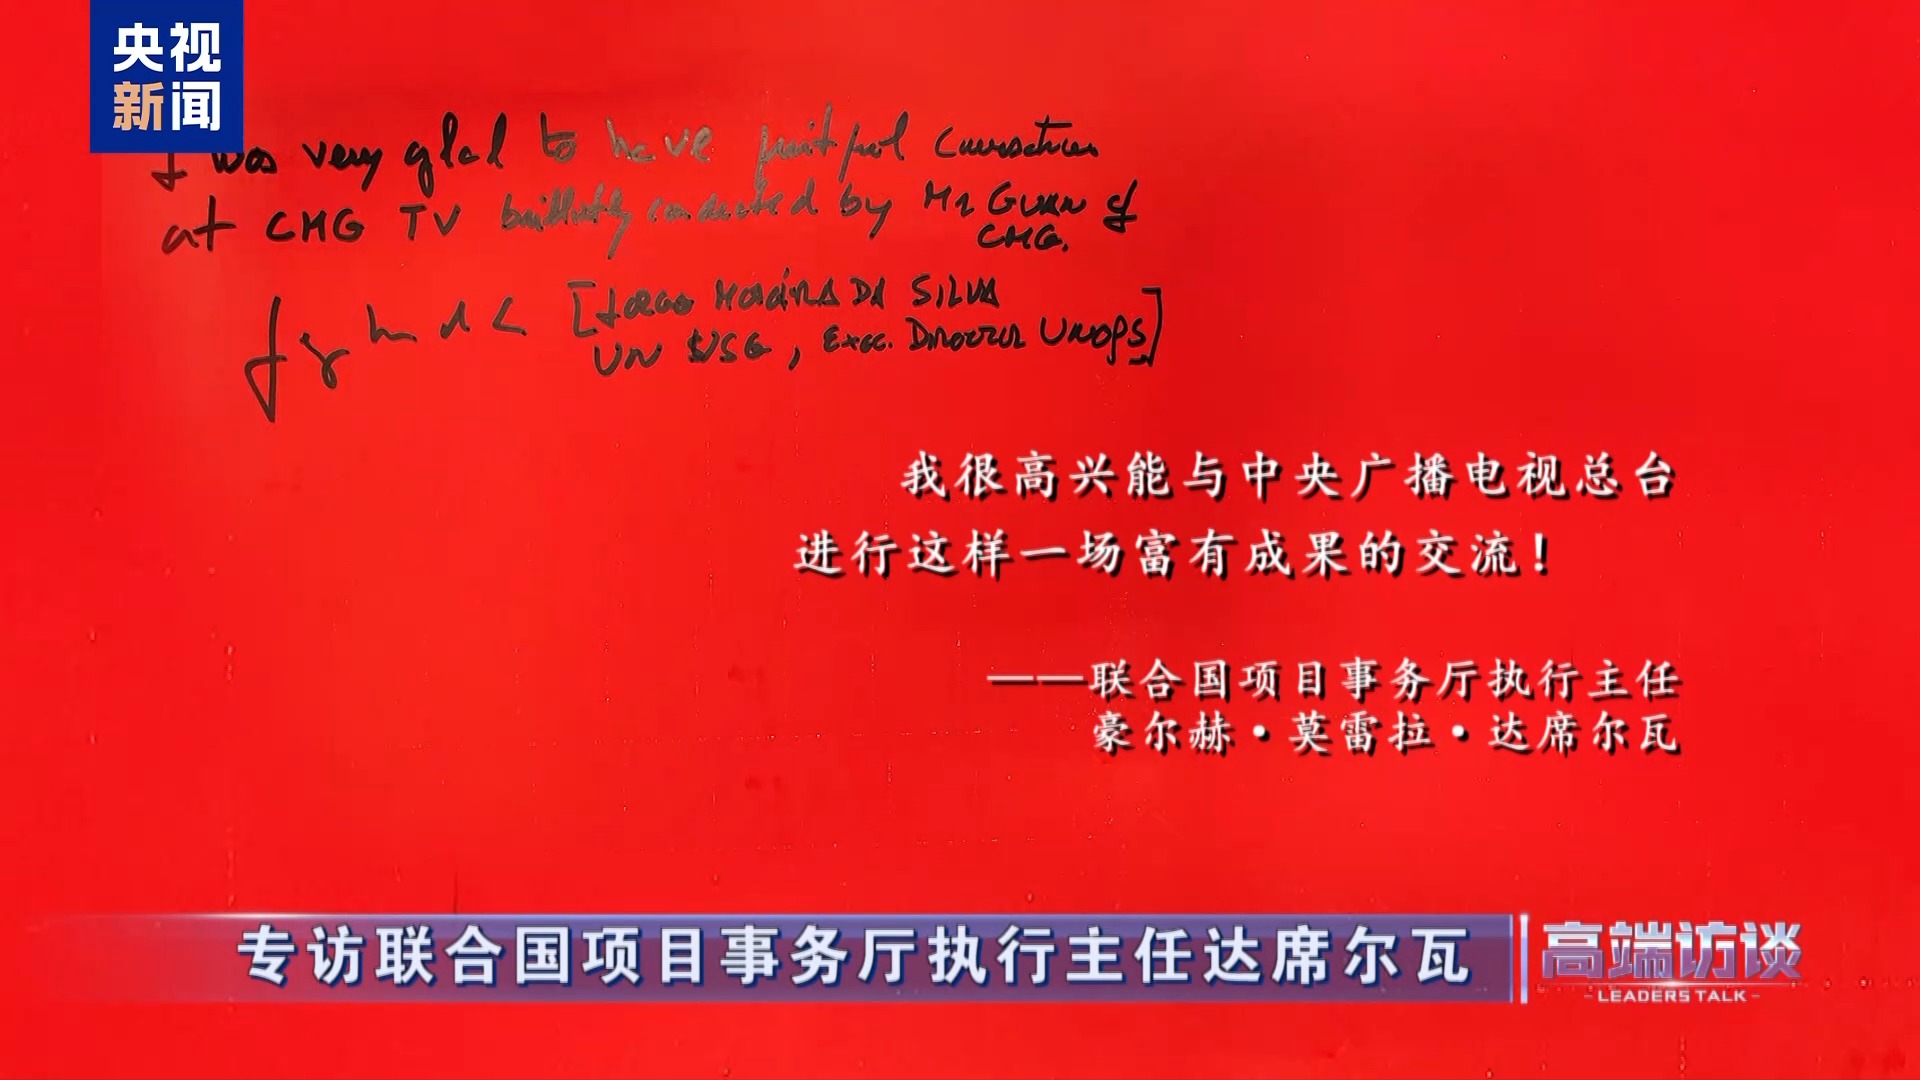 央视
新闻
I was very glad to have fruitful conversation
at CMG TV brilliantly conducted by Mr Guan of
CMG.
[Jorge Moreira DA SILVA
UN USG, Exec. Director UNOPS]
我很高兴能与中央广播电视总台
进行这样一场富有成果的交流！
——联合国项目事务厅执行主任
豪尔赫·莫雷拉·达席尔瓦
专访联合国项目事务厅执行主任达席尔瓦
高端访谈
-LEADERS TALK-